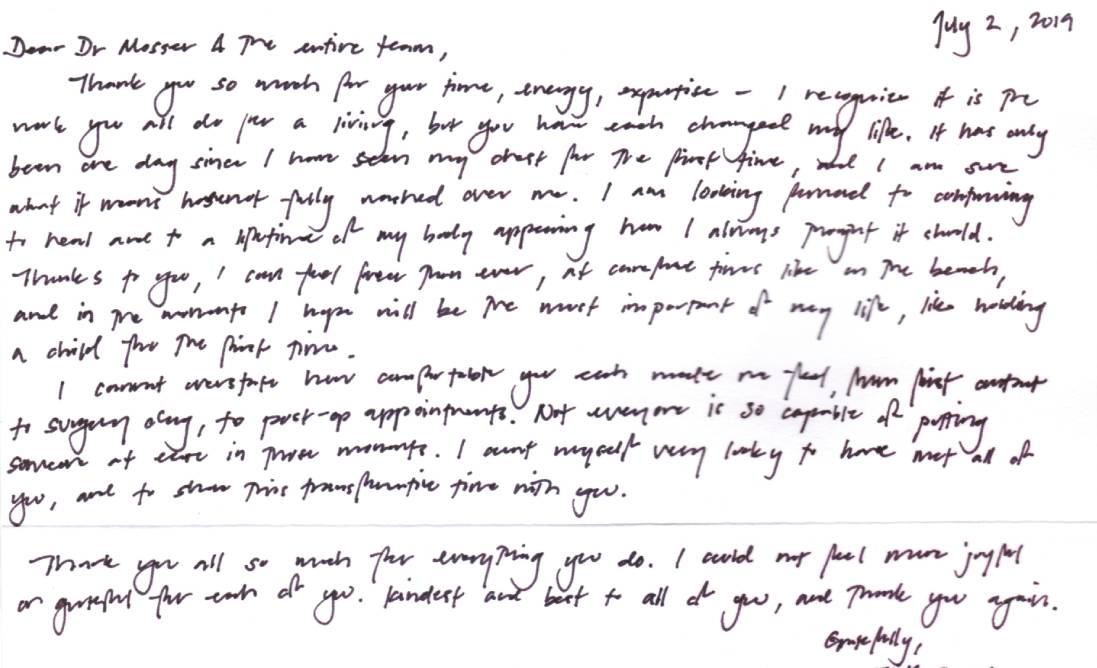 July 2, 2019
Dear Dr Mosser & the entire team,
Thank you so much for your time, energy, expertise - I recognize it is the
work you all do for a living, but you have each changed my life. It has only
been one day since I have seen my chest for the first time, and I am sure
what it means has not fully washed over me. I am looking forward to continuing
to heal and to a lifetime of my body appearing how I always thought it should.
Thanks to you, I can feel freer than ever, at carefree times like on the beach,
and in the moments I hope will be the most important of my life, like holding
a child for the first time.
I cannot overstate how comfortable you each made me feel, from first contact
to surgery day, to post-op appointments. Not everyone is so capable of putting
someone at ease in those moments. I count myself very lucky to have met all of
you, and to share this transformative time with you.
Thank you all so much for everything you do. I could not feel more joyful
or grateful for each of you. Kindest and best to all of you, and thank you again.
Gratefully,